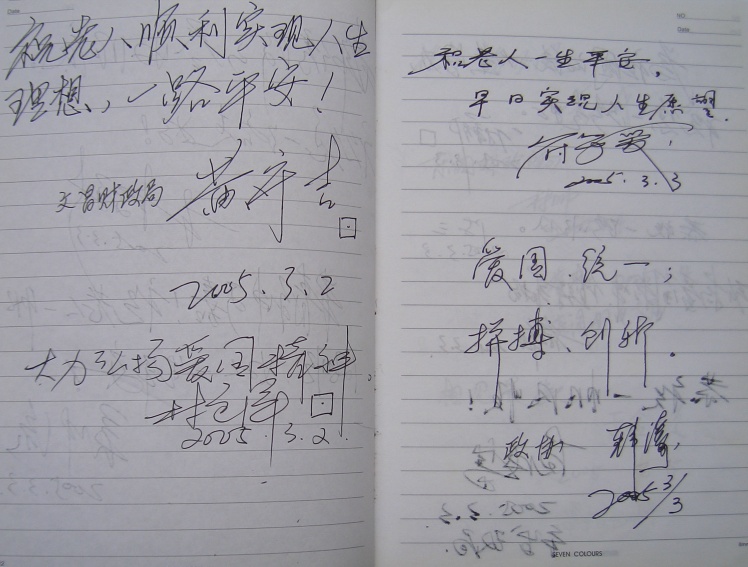 祝老人顺利实现人生
理想,一路平安!
文昌财政局 黄守吉
2005.3.2
大力弘扬爱国精神。
2005.3.2.
Date
NO
Date
祝老人一生平安,
早日实现人生愿望
2005.3.3
爱国、统一;
拼搏、创新.
政协
2005 3/3
SEVEN COLOURS